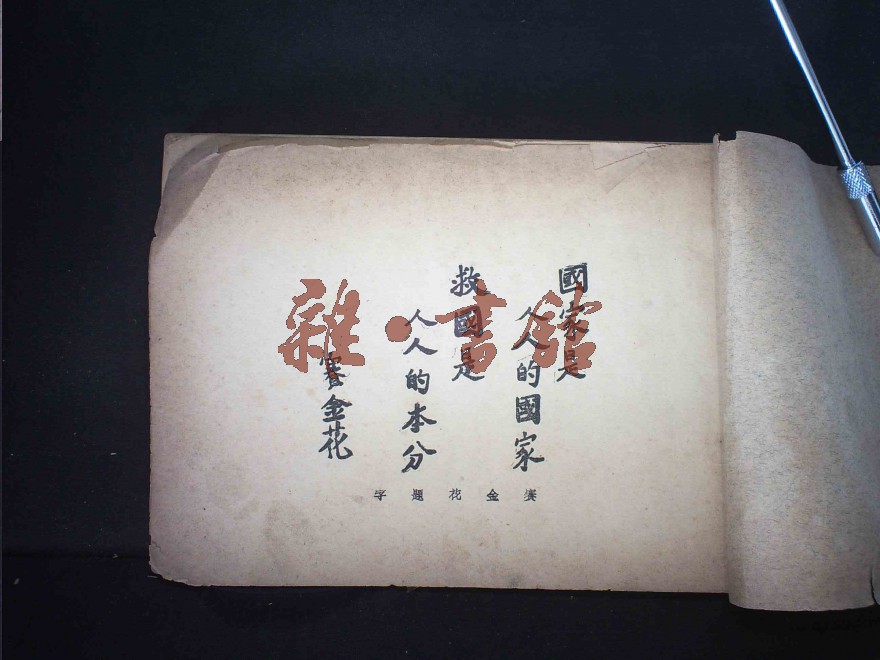 國家是
人人的國家
救國是
人人的本分
賽金花
賽金花題字
雜·書館